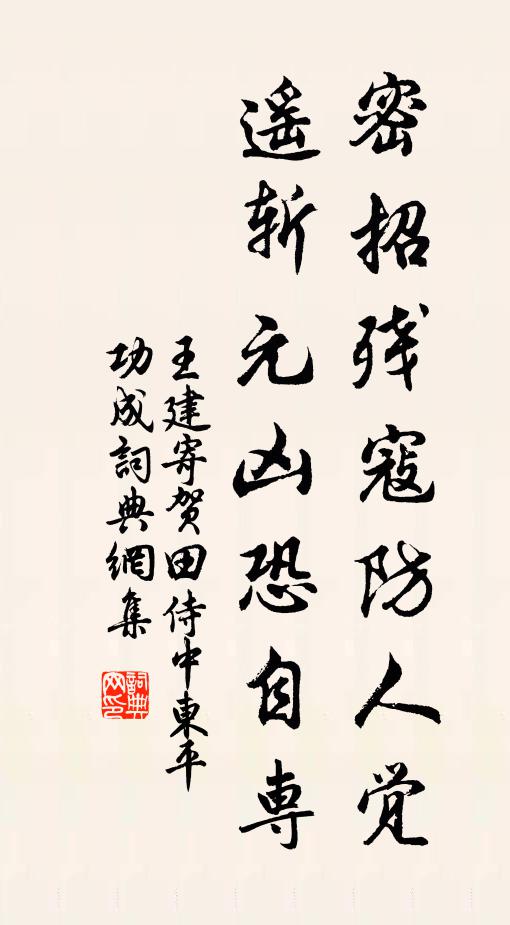 密招残寇防人覚
遥斬元凶恐自専
王建寄贺田侍中東平
功成詞典網集
詞典网印